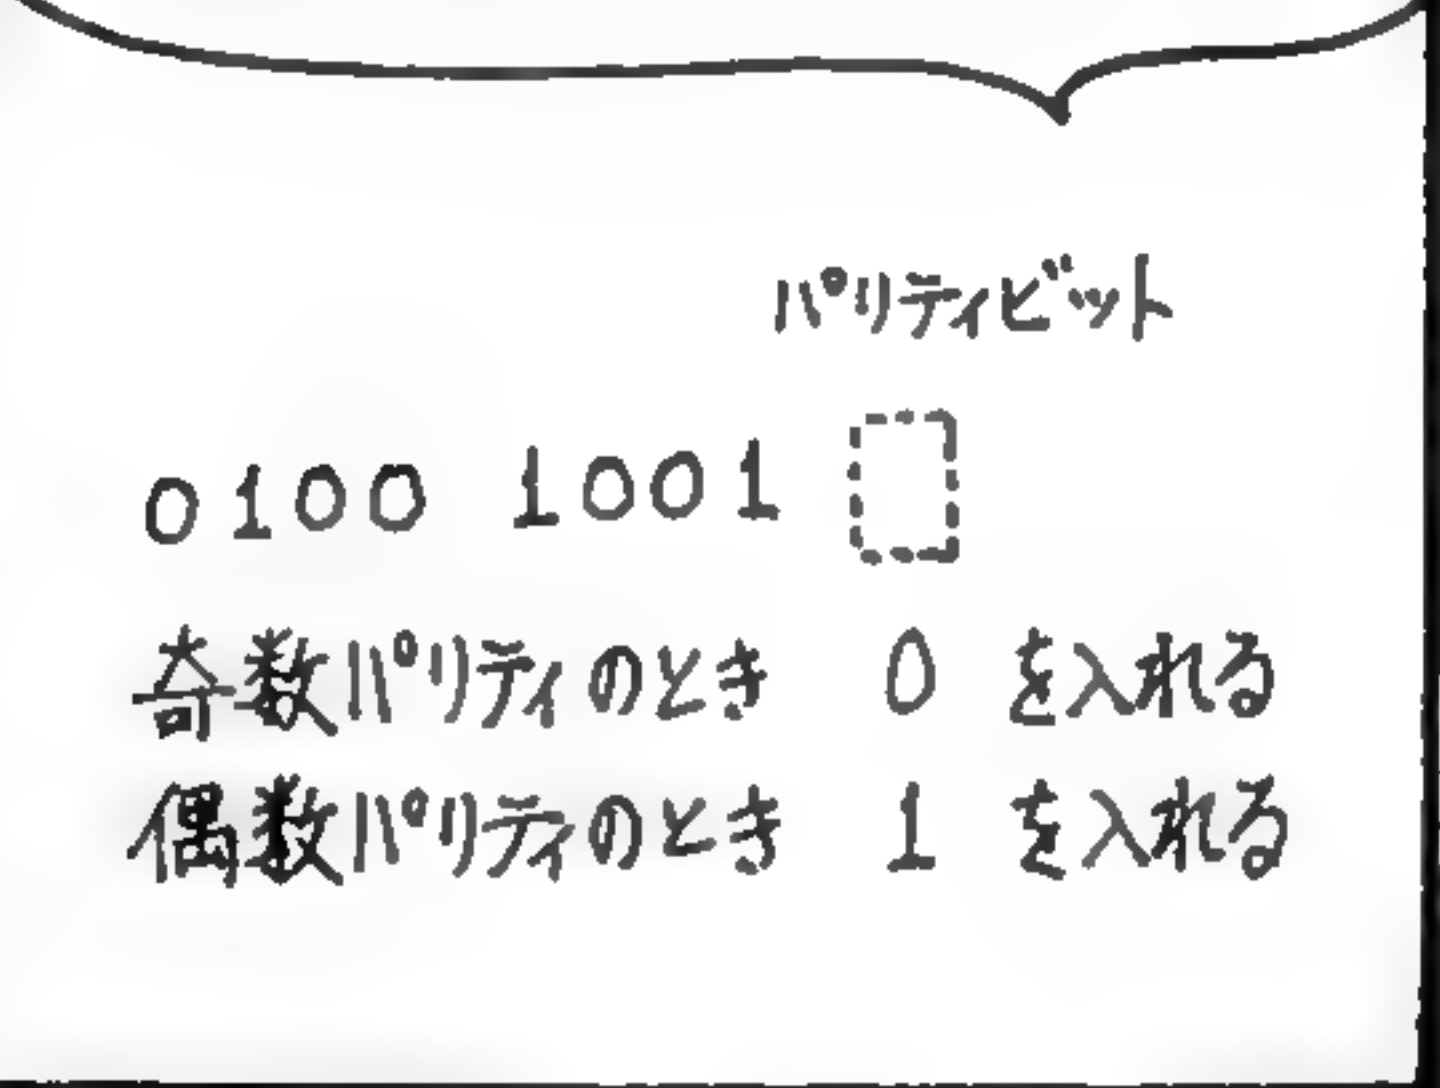 パリティビット
0100 1001
奇数パリティのとき 0 を入れる
偶数パリティのとき 1 を入れる